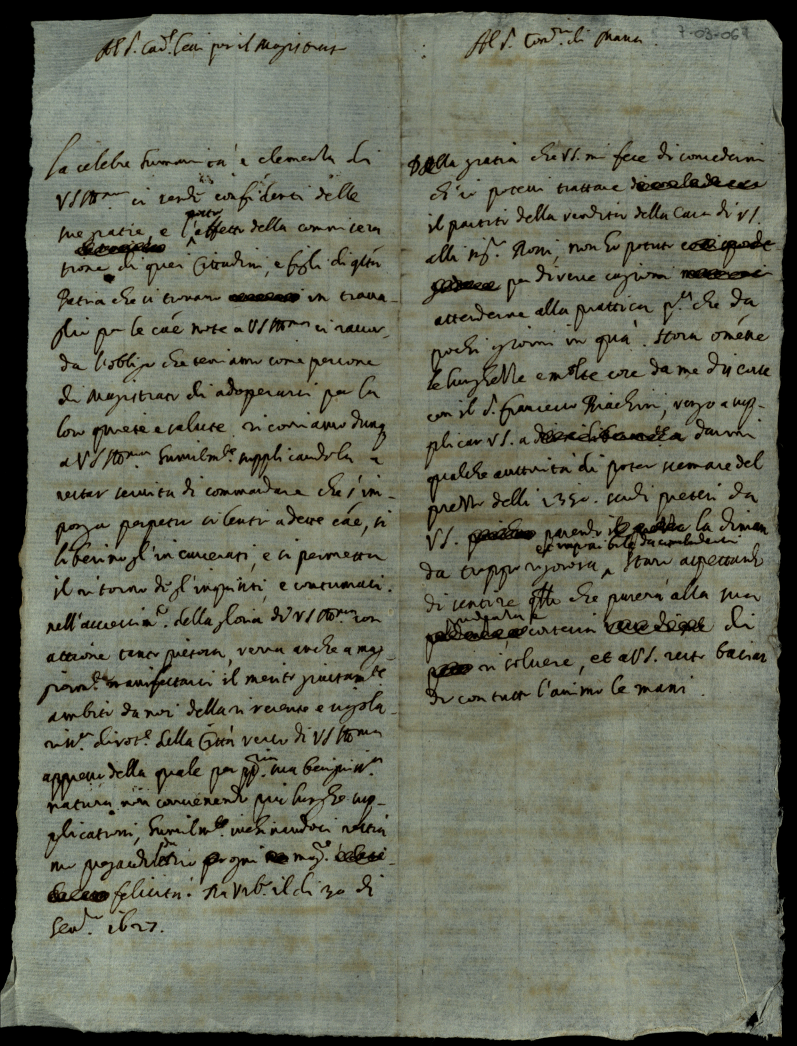 Al S. Card. Levi per il Magistrato
La celebre humanità e clemenza di
VS Ill.ma ci rende confidenti delle
sue gratie, e l'affetto della commisera
tione di quei Cittadini, e figli di q.sta
Patria che si trovano in trava-
glio per le cause note a VS Ill.ma ci raccor
da l'obligo che teniamo come persone
di Magistrato di adoperarci per la
loro quiete e salute. ricorriamo dunq
a VS Ill.ma humilm.te supplicandola a
restar servita di commandare che s'im-
ponga perpetuo silentio a dette cause, si
liberino gl'incarcerati, e si permetta
il ritorno de gl'inquisiti, e contumaci.
nell'accrescim.to della gloria di VS Ill.ma con
attione tanto pietosa, verrà anche a mag-
giorm.te manifestarsi il merito giustam.te
ambito da noi della riverente e singola-
riss.a divot.e della Città verso di VS Ill.ma
appresso della quale per sua benigniss.a
natura non convenendo più lunghe sup-
plicationi, humilm.te inchinandoci resti
mo pregandole ogni mag.e
felicità. Di Urb.o il dì 30 di
Gen.o 1627.
Al S. di
7-03-067
Della gratia che VS. mi fece di concedermi
ch'io potessi trattare
il partito della vendita della Casa di VS.
alli Sig.ri Rossi, non ho potuto
per diverse cagioni
attenderne alla prattica p.a che da
pochi giorni in qua. Hora omesse
le lunghezze e molte cose da me discusse
con il S. Francesco Riachini, vengo a sup-
plicar VS. a darmi
qualche auttorità di poter scemare del
prezzo delli 1350. scudi pretesi da
VS. parendo la diman
da troppo rigorosa et impossibile da concludersi Starò aspettando
di sentire q.to che parerà alla sua
prudenza e cortesia di
risolvere, et a VS. resto bacian
do con tutto l'animo le mani.